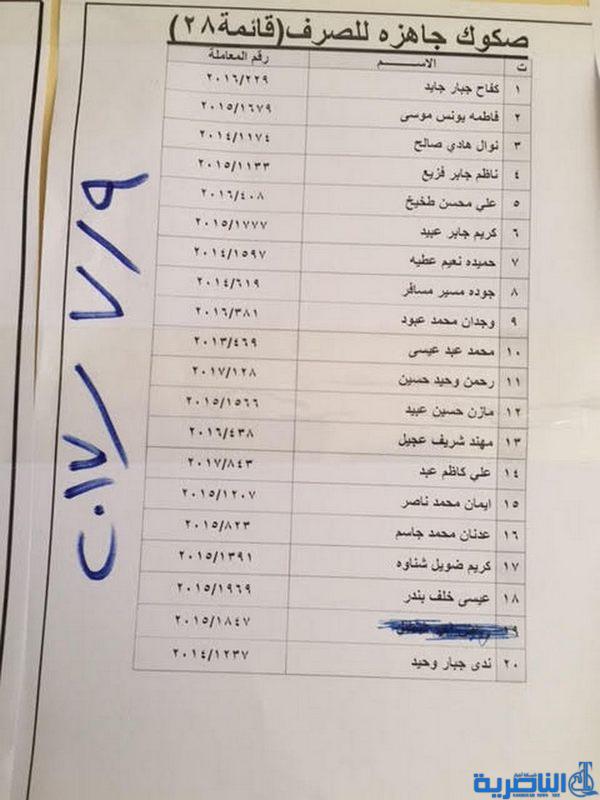 صكوك جاهزه للصرف(قائمة٢٨)
ت الاســـم رقم المعاملة
١ كفاح جبار جايد ٢٠١٦/٢٢٩
٢ فاطمه يونس موسى ٢٠١٥/١٦٧٩
٣ نوال هادي صالح ٢٠١٤/١١٧٤
٤ ناظم جابر فزيع ٢٠١٥/١١٣٣
٥ علي محسن طخيخ ٢٠١٦/٤٠٨
٦ كريم جابر عبيد ٢٠١٥/١٧٧٧
٧ حميده نعيم عطيه ٢٠١٤/١٥٩٧
٨ جوده مسير مسافر ٢٠١٤/٦١٩
٩ وجدان محمد عبود ٢٠١٦/٣٨١
١٠ محمد عبد عيسى ٢٠١٣/٤٦٩
١١ رحمن وحيد حسين ٢٠١٧/١٢٨
١٢ مازن حسين عبيد ٢٠١٥/١٥٦٦
١٣ مهند شريف عجيل ٢٠١٦/٤٣٨
١٤ علي كاظم عبد ٢٠١٧/٨٤٣
١٥ ايمان محمد ناصر ٢٠١٥/١٢٠٧
١٦ عدنان محمد جاسم ٢٠١٥/٨٢٣
١٧ كريم ضويل شناوه ٢٠١٥/١٣٩١
١٨ عيسى خلف بندر ٢٠١٥/١٩٦٩
٢٠١٥/١٨٤٧
٢٠ ندى جبار وحيد ٢٠١٤/١٢٣٧
٢٠١٧/ ٧/٩
الناصرية